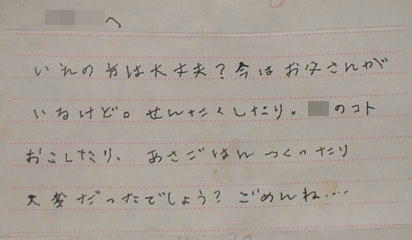 へ
いれの方は大丈夫？今はお父さんが
いねけど。せんたくしたり。のコト
おこしたり、あさごはんつくったり
大変だったでしょう？ごめんね….